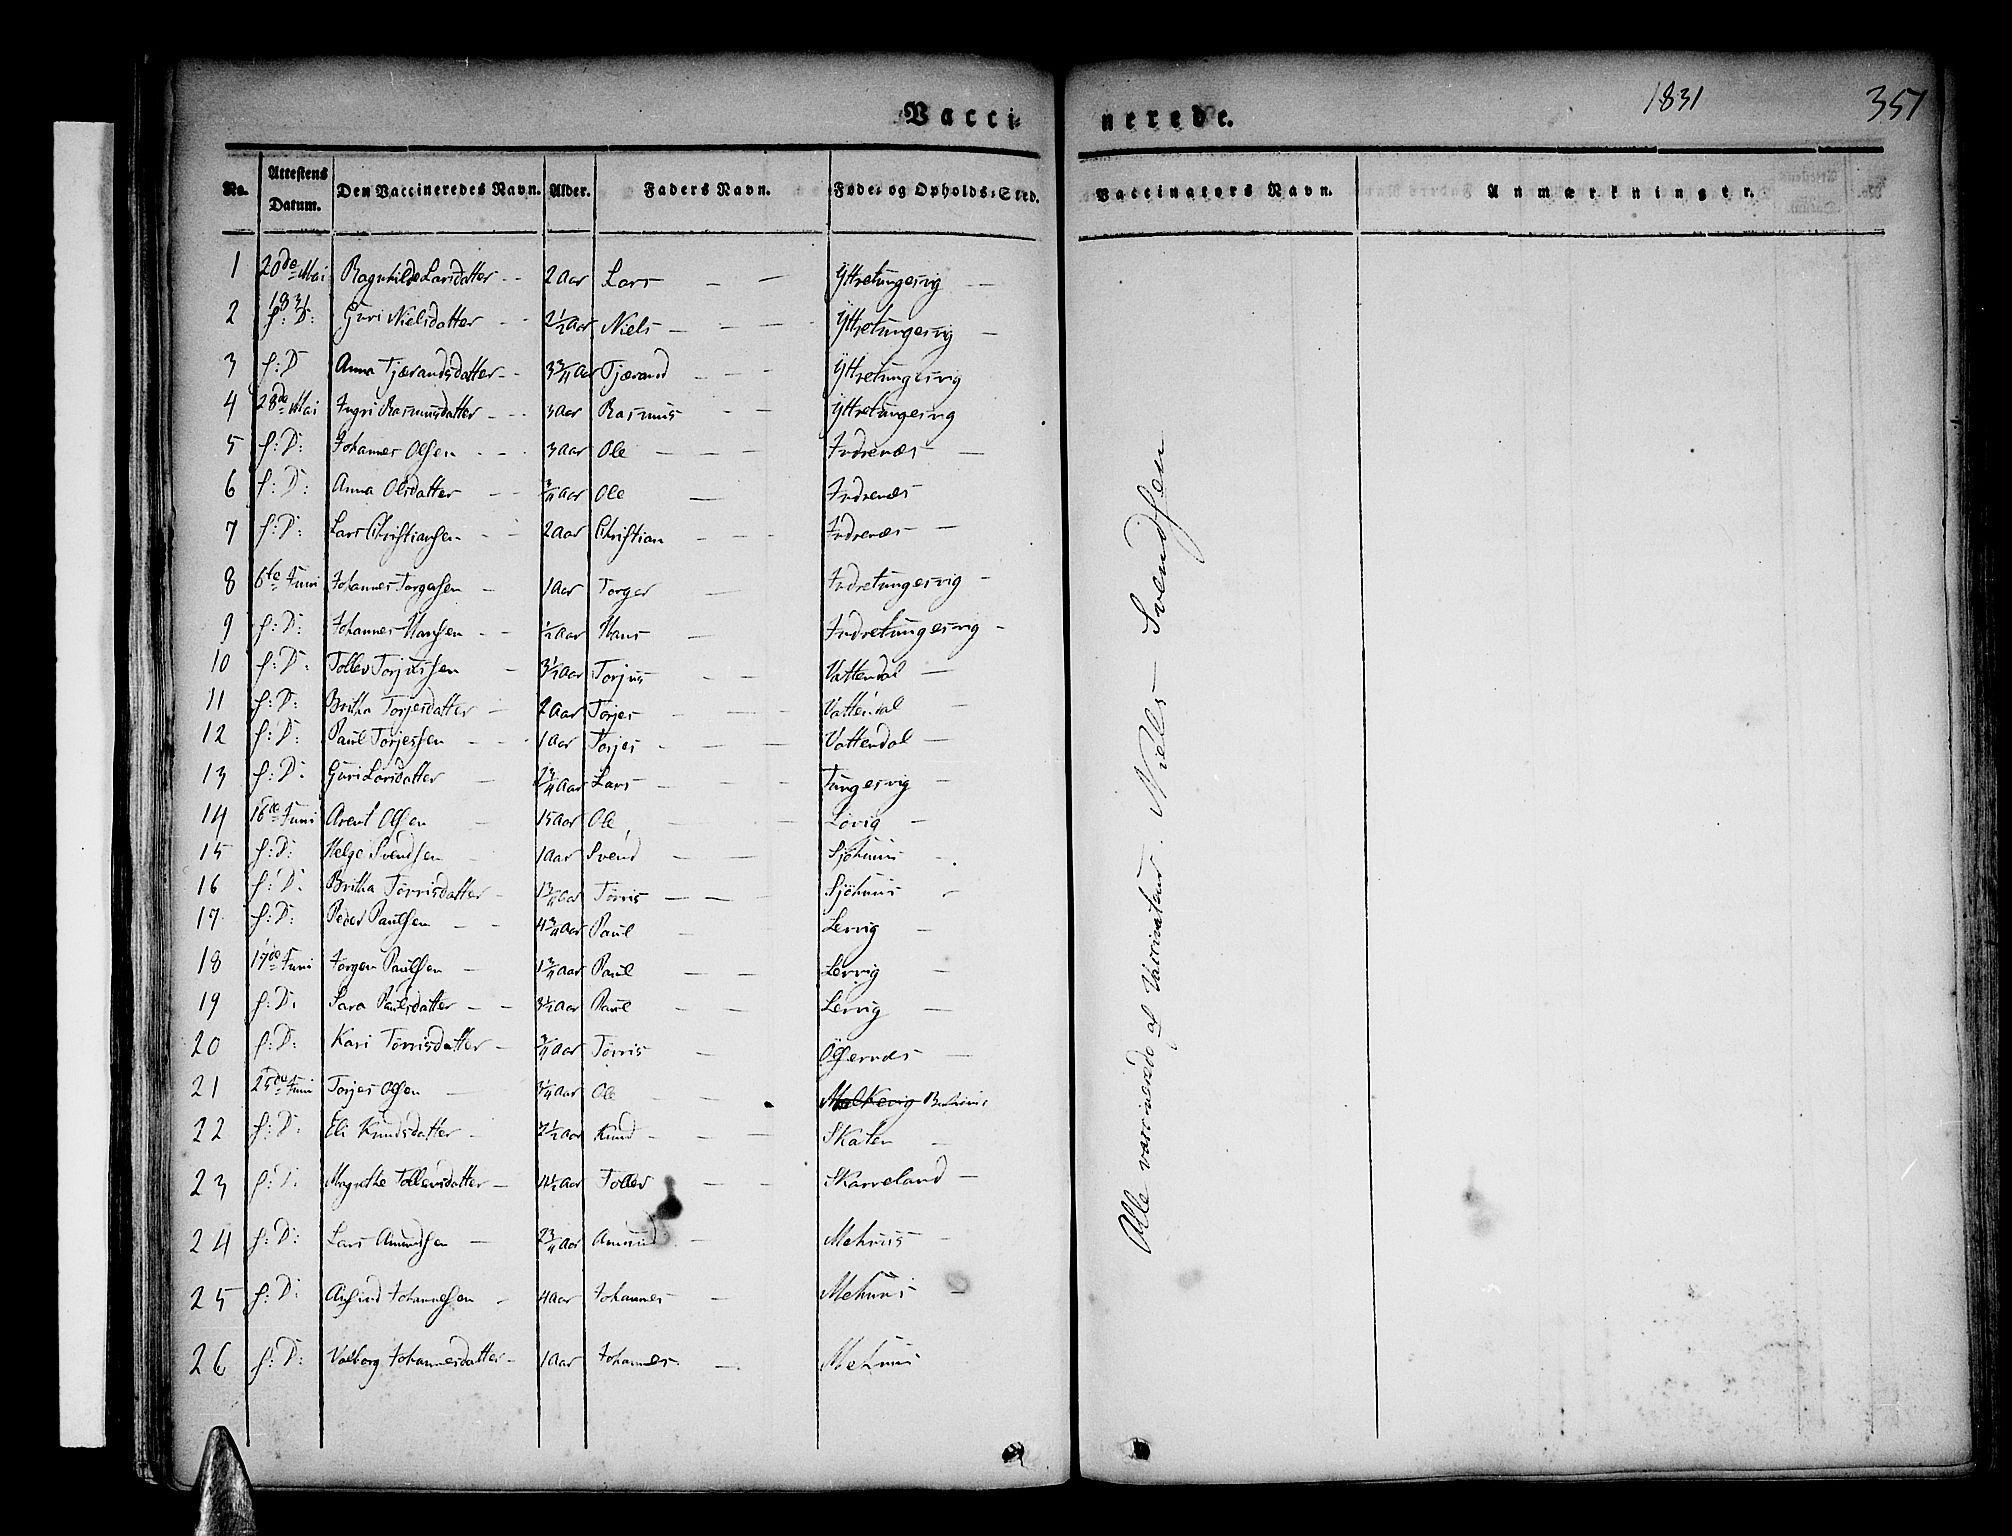 1831 351
Vaccinerede.
No. Attestens Datum. Den Vaccineredes Navn. Alder. Faders Navn. Føde- og Opholds-Sted. Vaccinateurs Navn. Anmærkninger.
1 20de Mai 1831 Ragnhilde Larsdatter 2 Aar Lars Yttretungesvig
2 s: D: Guri Nielsdatter 2½ Aar Niels Yttretungesvig
3 s: D Anna Tjærandsdatter 3 3/4 Aar Tjærand Yttretungesvig
4 28de Mai Ingri Rasmusdatter 3 Aar Rasmus Yttretungesvig
5 s: D: Johannes Olsen 3 Aar Ole Indrenæs
6 s: D: Anna Olsdatter 3/4 Aar Ole Indrenæs
7 s: D: Lars Christiansen 2 Aar Christian Indrenæs
8 6te Juni Johannes Torgersen 1 Aar Torger Indretungesvig
9 s: D: Johannes Hansen ½ Aar Hans Indretungesvig
10 s: D: Tollev Torjussen 3½ Aar Torjus Vattendal
11 s: D: Britha Torjesdatter 2 Aar Torjes Vattendal
12 s: D: Paul Torjessen 1 Aar Torjes Vattendal
13 s: D. Guri Larsdatter 2 3/4 Aar Lars Tungesvig
14 16de Juni Arent Olsen 15 Aar Ole Lovig
15 s: D: Helge Svendsen 1 Aar Svend Sjöhuus
16 s: D. Britha Tørrisdatter 1 3/4 Aar Tørris Sjöhuus
17 s: D: Peder Paulsen 4 3/4 Aar Paul Lervig
18 17de Juni Jorgen Paulsen 1 3/4 Aar Paul Lervig
19 s: D. Sara Paulsdatter 3½ Aar Paul Lervig
20 s: D: Kari Tørrisdatter 3/4 Aar Tørris
21 25de Juni Torjes Olsen 3/4 Aar Ole Malkevig
22 s: D: Eli Knudsdatter 2½ Aar Knud Skaten
23 s: D: Magrethe Tollevsdatter 4½ Aar Tollev Skarveland
24 s: D: Lars Amundsen 2 3/4 Aar Amund Mehuus
25 s: D: Johannesen 4 Aar Johannes Mehuus
26 s: D: Valborg Johannesdatter 1 Aar Johannes Mehuus
Alle vaccinerede af Vaccinateur. Niels Svendsen